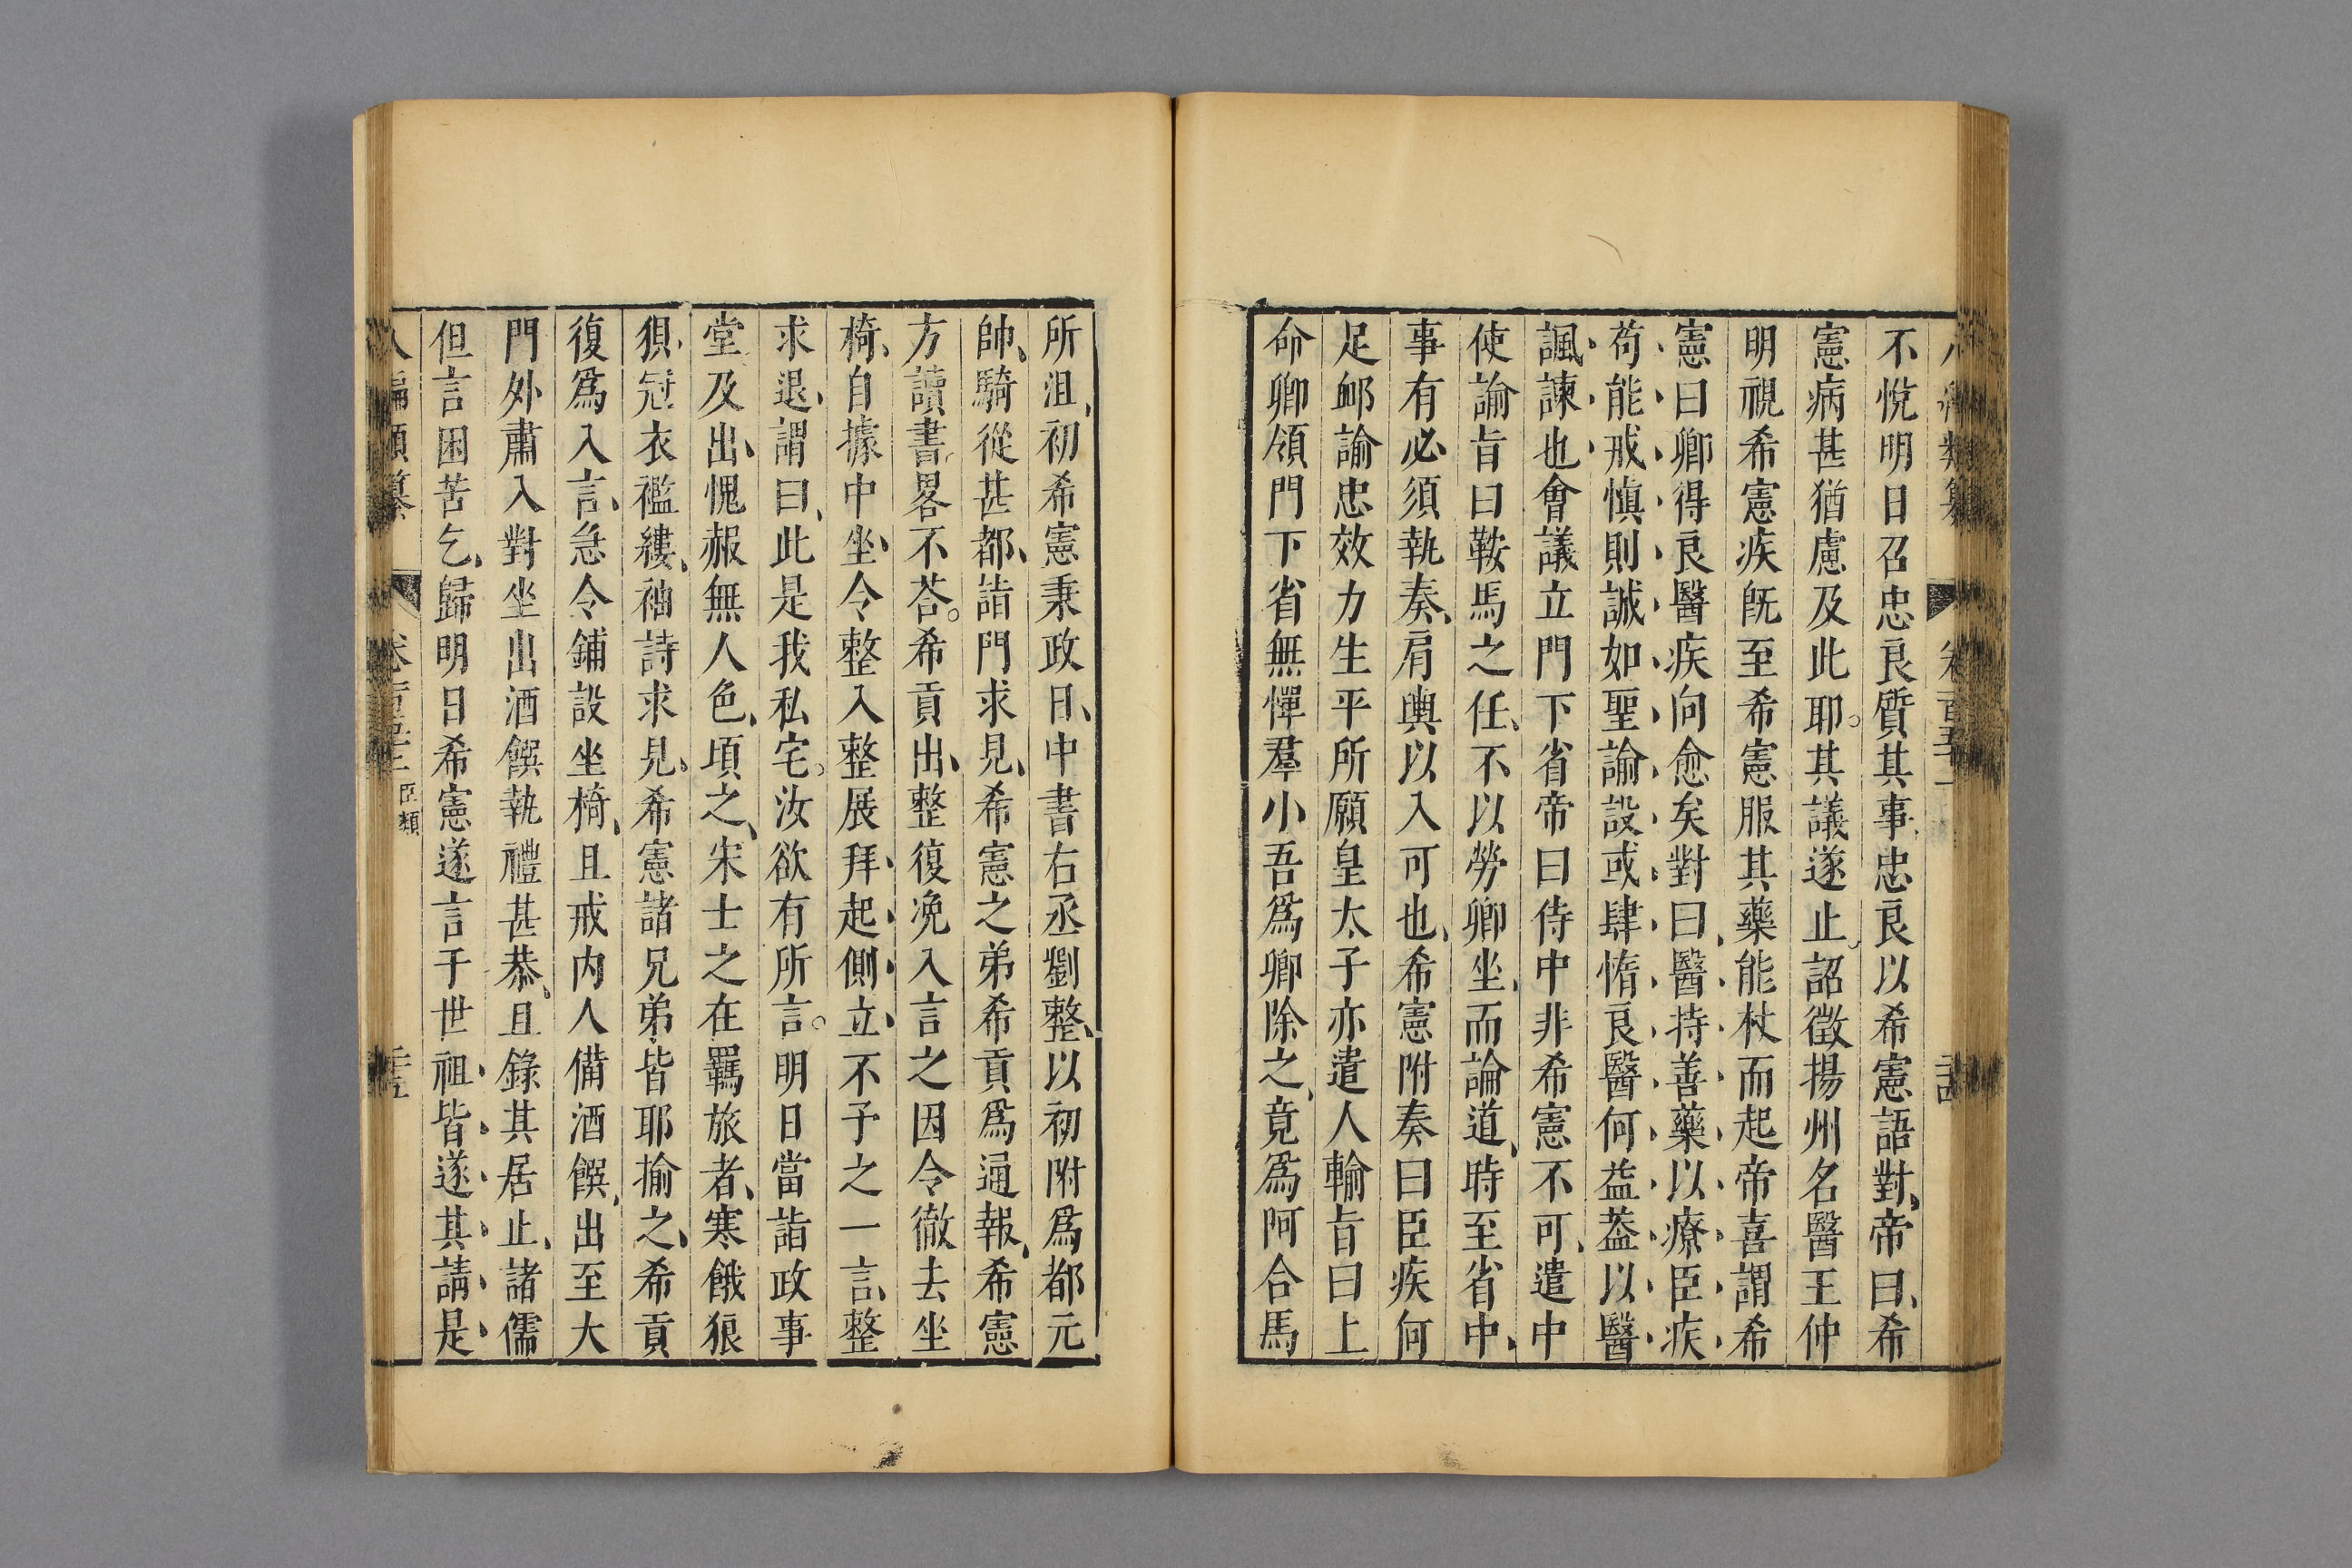 不悅明日召忠良質其事忠良以希憲語對帝曰希
憲病甚猶慮及此耶其議遂止詔徵揚州名醫王仲
明視希憲疾旣至希憲服其藥能杖而起帝喜謂希
憲曰卿得良醫疾向愈矣對曰醫持善藥以療臣疾
苟能戒慎則誠如聖諭設或肆惰良醫何益葢以醫
諷諫也會議立門下省帝曰侍中非希憲不可遣中
使諭旨曰鞍馬之任不以勞卿坐而論道時至省中
事有必須執奏肩輿以入可也希憲附奏曰臣疾何
足卹諭忠效力生平所願皇太子亦遣人輸旨曰上
命卿領門下省無憚羣小吾爲卿除之竟爲阿合馬
所沮初希憲秉政日中書右丞劉整以初附爲都元
帥騎從甚都詣門求見希憲之弟希貢爲通報希憲
方讀書畧不荅希貢出整復浼入言之因令徹去坐
椅自據中坐令整入整展拜起側立不予之一言整
求退謂曰此是我私宅汝欲有所言明日當詣政事
堂及出愧赧無人色頃之宋士之在羈旅者寒餓狼
狽冠衣襤縷袖詩求見希憲諸兄弟皆耶揄之希貢
復爲入言急令鋪設坐椅且戒內人備酒饌出至大
門外肅入對坐出酒饌執禮甚恭且錄其居止諸儒
但言困苦乞歸明日希憲遂言于世祖皆遂其請是
臣類